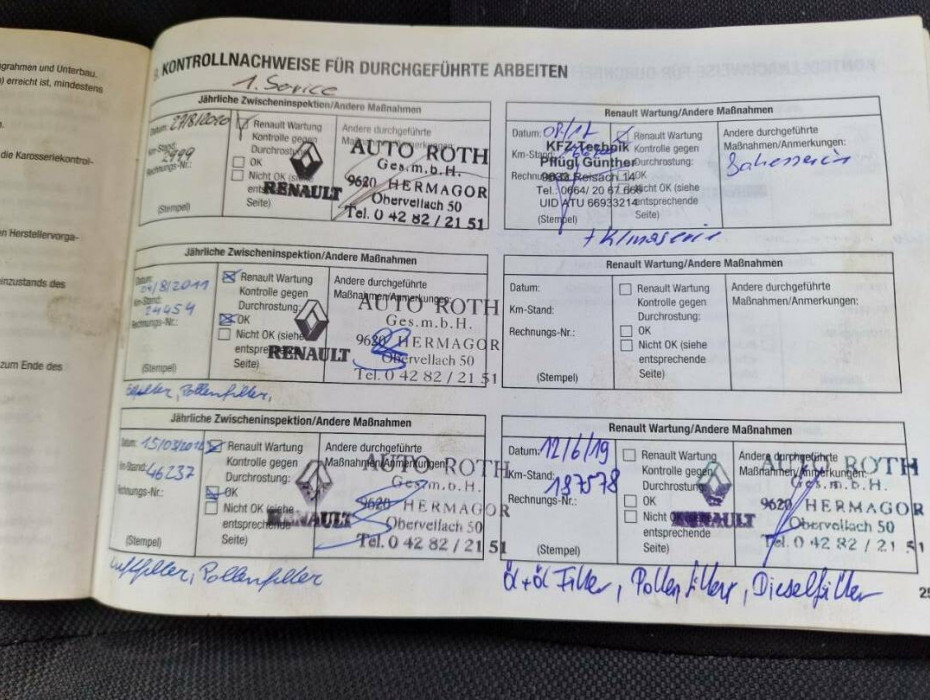 grahmen und Unterbau.
) erreicht ist, mindestens
die Karosseriekontrol-
n Herstellervorga-
inzustands des
zum Ende des
KONTROLLNACHWEISE FÜR DURCHGEFÜHRTE ARBEITEN
1. Service
Jährliche Zwischeninspektion/Andere Maßnahmen
Datum: 27/8/2010
Km-Stand:
2499
Rechnungs-Nr.:
(Stempel)
Renault Wartung
Kontrolle gegen
Durchrostung:
OK
Nicht OK
Seite)
Andere durchgeführte
RENAULT
AUTO ROTH
Ges.m.b.H.
9620 HERMAGOR
Obervellach 50
Tel. 0 42 82 / 21 51
Renault Wartung/Andere Maßnahmen
Datum: 08/17
Km-Stand:
(Stempel)
KFZ-Technik
Pflügl Günther
Reisach 14
Tel.: 0664/ 20 67 566
UID ATU 66933214
Renault Wartung
Kontrolle gegen
Durchrostung:
OK
Nicht OK (siehe
entsprechende
Seite)
Andere durchgeführte
Maßnahmen/Anmerkungen:
Jährliche Zwischeninspektion/Andere Maßnahmen
Datum:
/8/2011
Km-Stand:
24454
Rechnungs-Nr.:
(Stempel)
Renault Wartung
Kontrolle gegen
Durchrostung:
OK
Nicht OK (siehe
Seite)
Andere durchgeführte
Maßnahmen/Anmerkungen:
RENAULT
AUTO ROTH
Ges.m.b.H.
9620 HERMAGOR
Obervellach 50
Tel. 0 42 82 / 21 51
Pollenfilter,
Renault Wartung/Andere Maßnahmen
Datum:
Km-Stand:
Rechnungs-Nr.:
(Stempel)
Renault Wartung
Kontrolle gegen
Durchrostung:
OK
Nicht OK (siehe
entsprechende
Seite)
Andere durchgeführte
Maßnahmen/Anmerkungen:
Jährliche Zwischeninspektion/Andere Maßnahmen
Datum: 15/03/2012
Km-Stand: 46237
Rechnungs-Nr.:
(Stempel)
Renault Wartung
Kontrolle gegen
Durchrostung:
OK
Nicht OK (siehe
entsprechende
Seite)
Andere durchgeführte
Maßnahmen/Anmerkungen:
RENAULT
AUTO ROTH
Ges.m.b.H.
9620 HERMAGOR
Obervellach 50
Tel. 0 42 82 / 21 51
Luftfilter, Pollenfilter
Renault Wartung/Andere Maßnahmen
Datum: 12/6/19
Km-Stand: 137578
Rechnungs-Nr.:
(Stempel)
Renault Wartung
Kontrolle gegen
Durchrostung:
OK
Nicht OK
entsprechende
Seite)
Andere durchgeführte
Maßnahmen/Anmerkungen:
RENAULT
AUTO ROTH
Ges.m.b.H.
9620 HERMAGOR
Obervellach 50
Tel. 0 42 82 / 21 51
Öl+Öl Filter, Pollenfilter, Dieselfilter